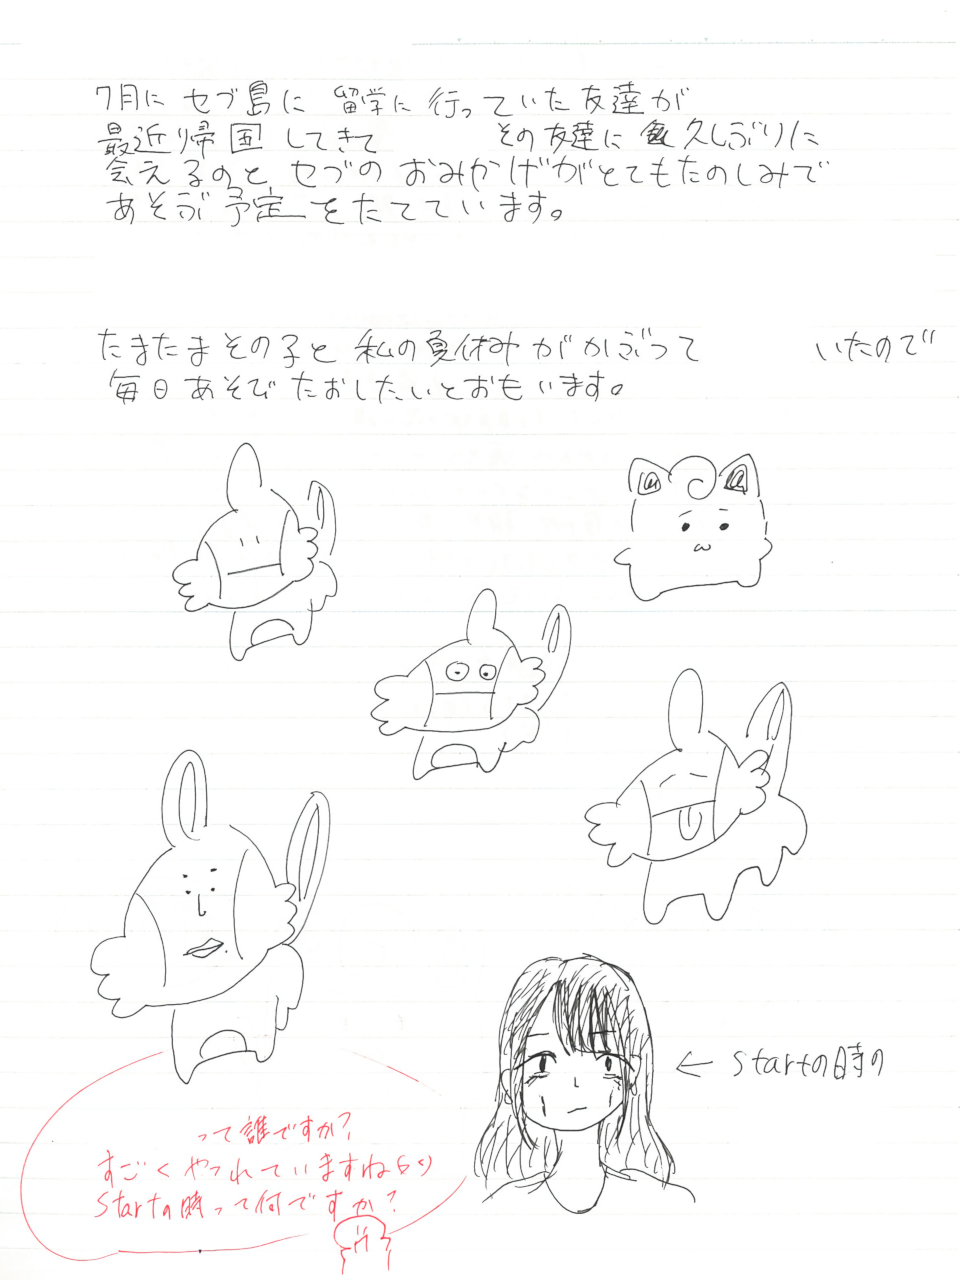 7月に セブ島に 留学に 行っていた友達が
最近帰国してきて その友達に 久しぶりに
会えるのと、セブの おみかげがとてもたのしみで
あそぶ予定をたてています。
たまたまその子と 私の夏休みがかぶって いたので
毎日あそびたおしたいとおもいます。
← startの時の
って誰ですか?
すごくやつれていますね
startの時って何ですか?